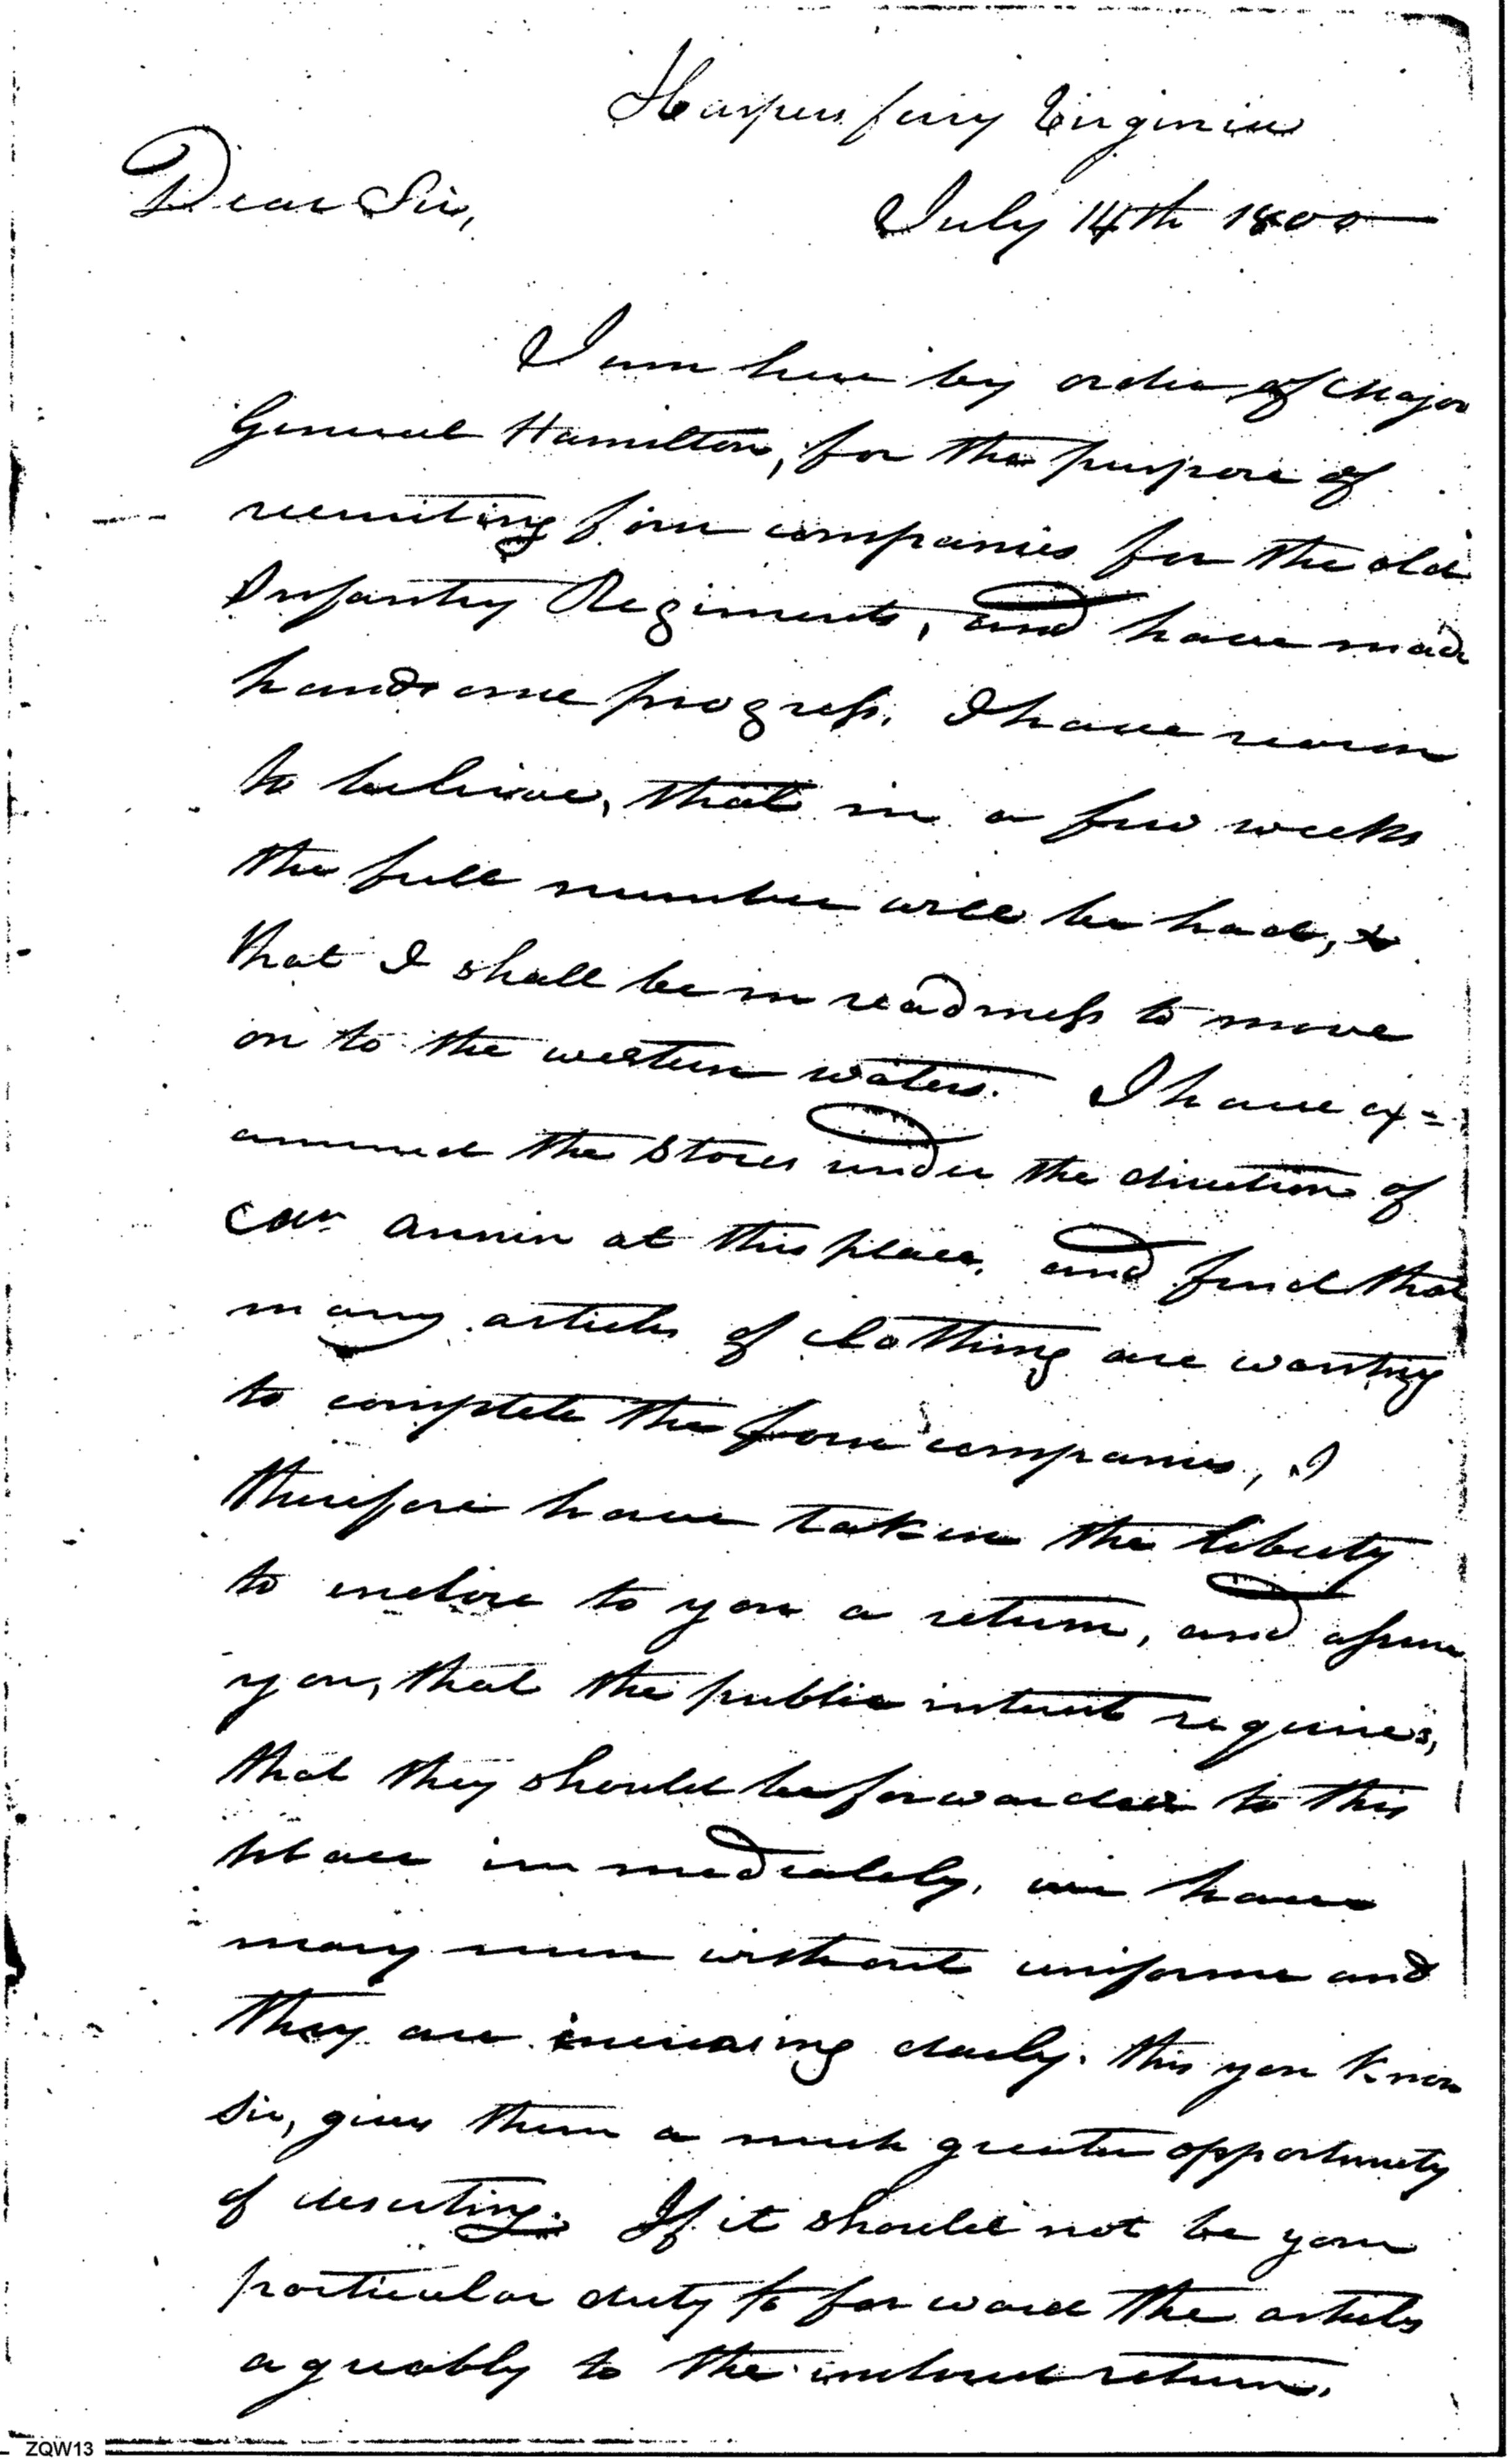 Harpers ferry Virginia
Dear Sir,
July 14th 1800
I am here by order of Major
General Hamilton, for the purpose of
recruiting four companies for the old
Infantry Regiments, and have made
handsome progress. I have reason
to believe, that in a few weeks
the full number will be had, &
that I shall be in readiness to move
on to the western waters. I have ex=
amined the Stores under the direction of
Annin at this place, and find that
many articles of clothing are wanting
to complete the four companies, I
therefore have taken the liberty
to inclose to you a return, and assure
you, that the public interest requires,
that they should be forwarded to this
place immediately, we have
many men without uniforms and
they are increasing daily. this you know
Sir, gives them a much greater opportunity
of deserting. If it should not be your
particular duty to forward the articles
agreeably to the inclosed return.
ZQW13